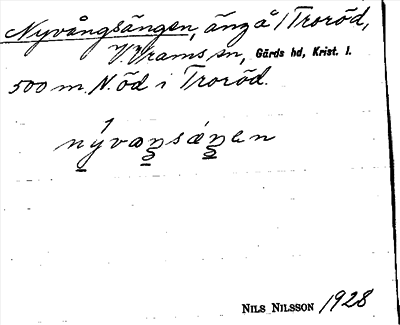 Nyvångsängen, äng å 1 Troröd,
V. Vrams sn, Gärds hd, Krist. l.
500 m. N. öd i Troröd.
nývaṉsǽṉen
NILS NILSSON 1928